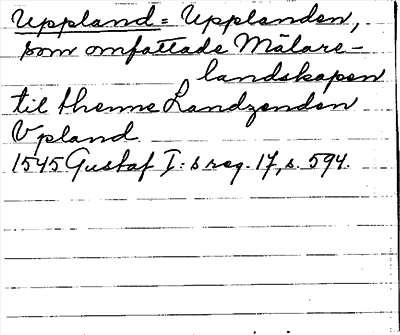 Uppland = Upplanden,
som omfattade Mälare-
landskapen
til thenne Landzenden
Vpland.
1545 Gustaf I:s reg. 17, s. 594.